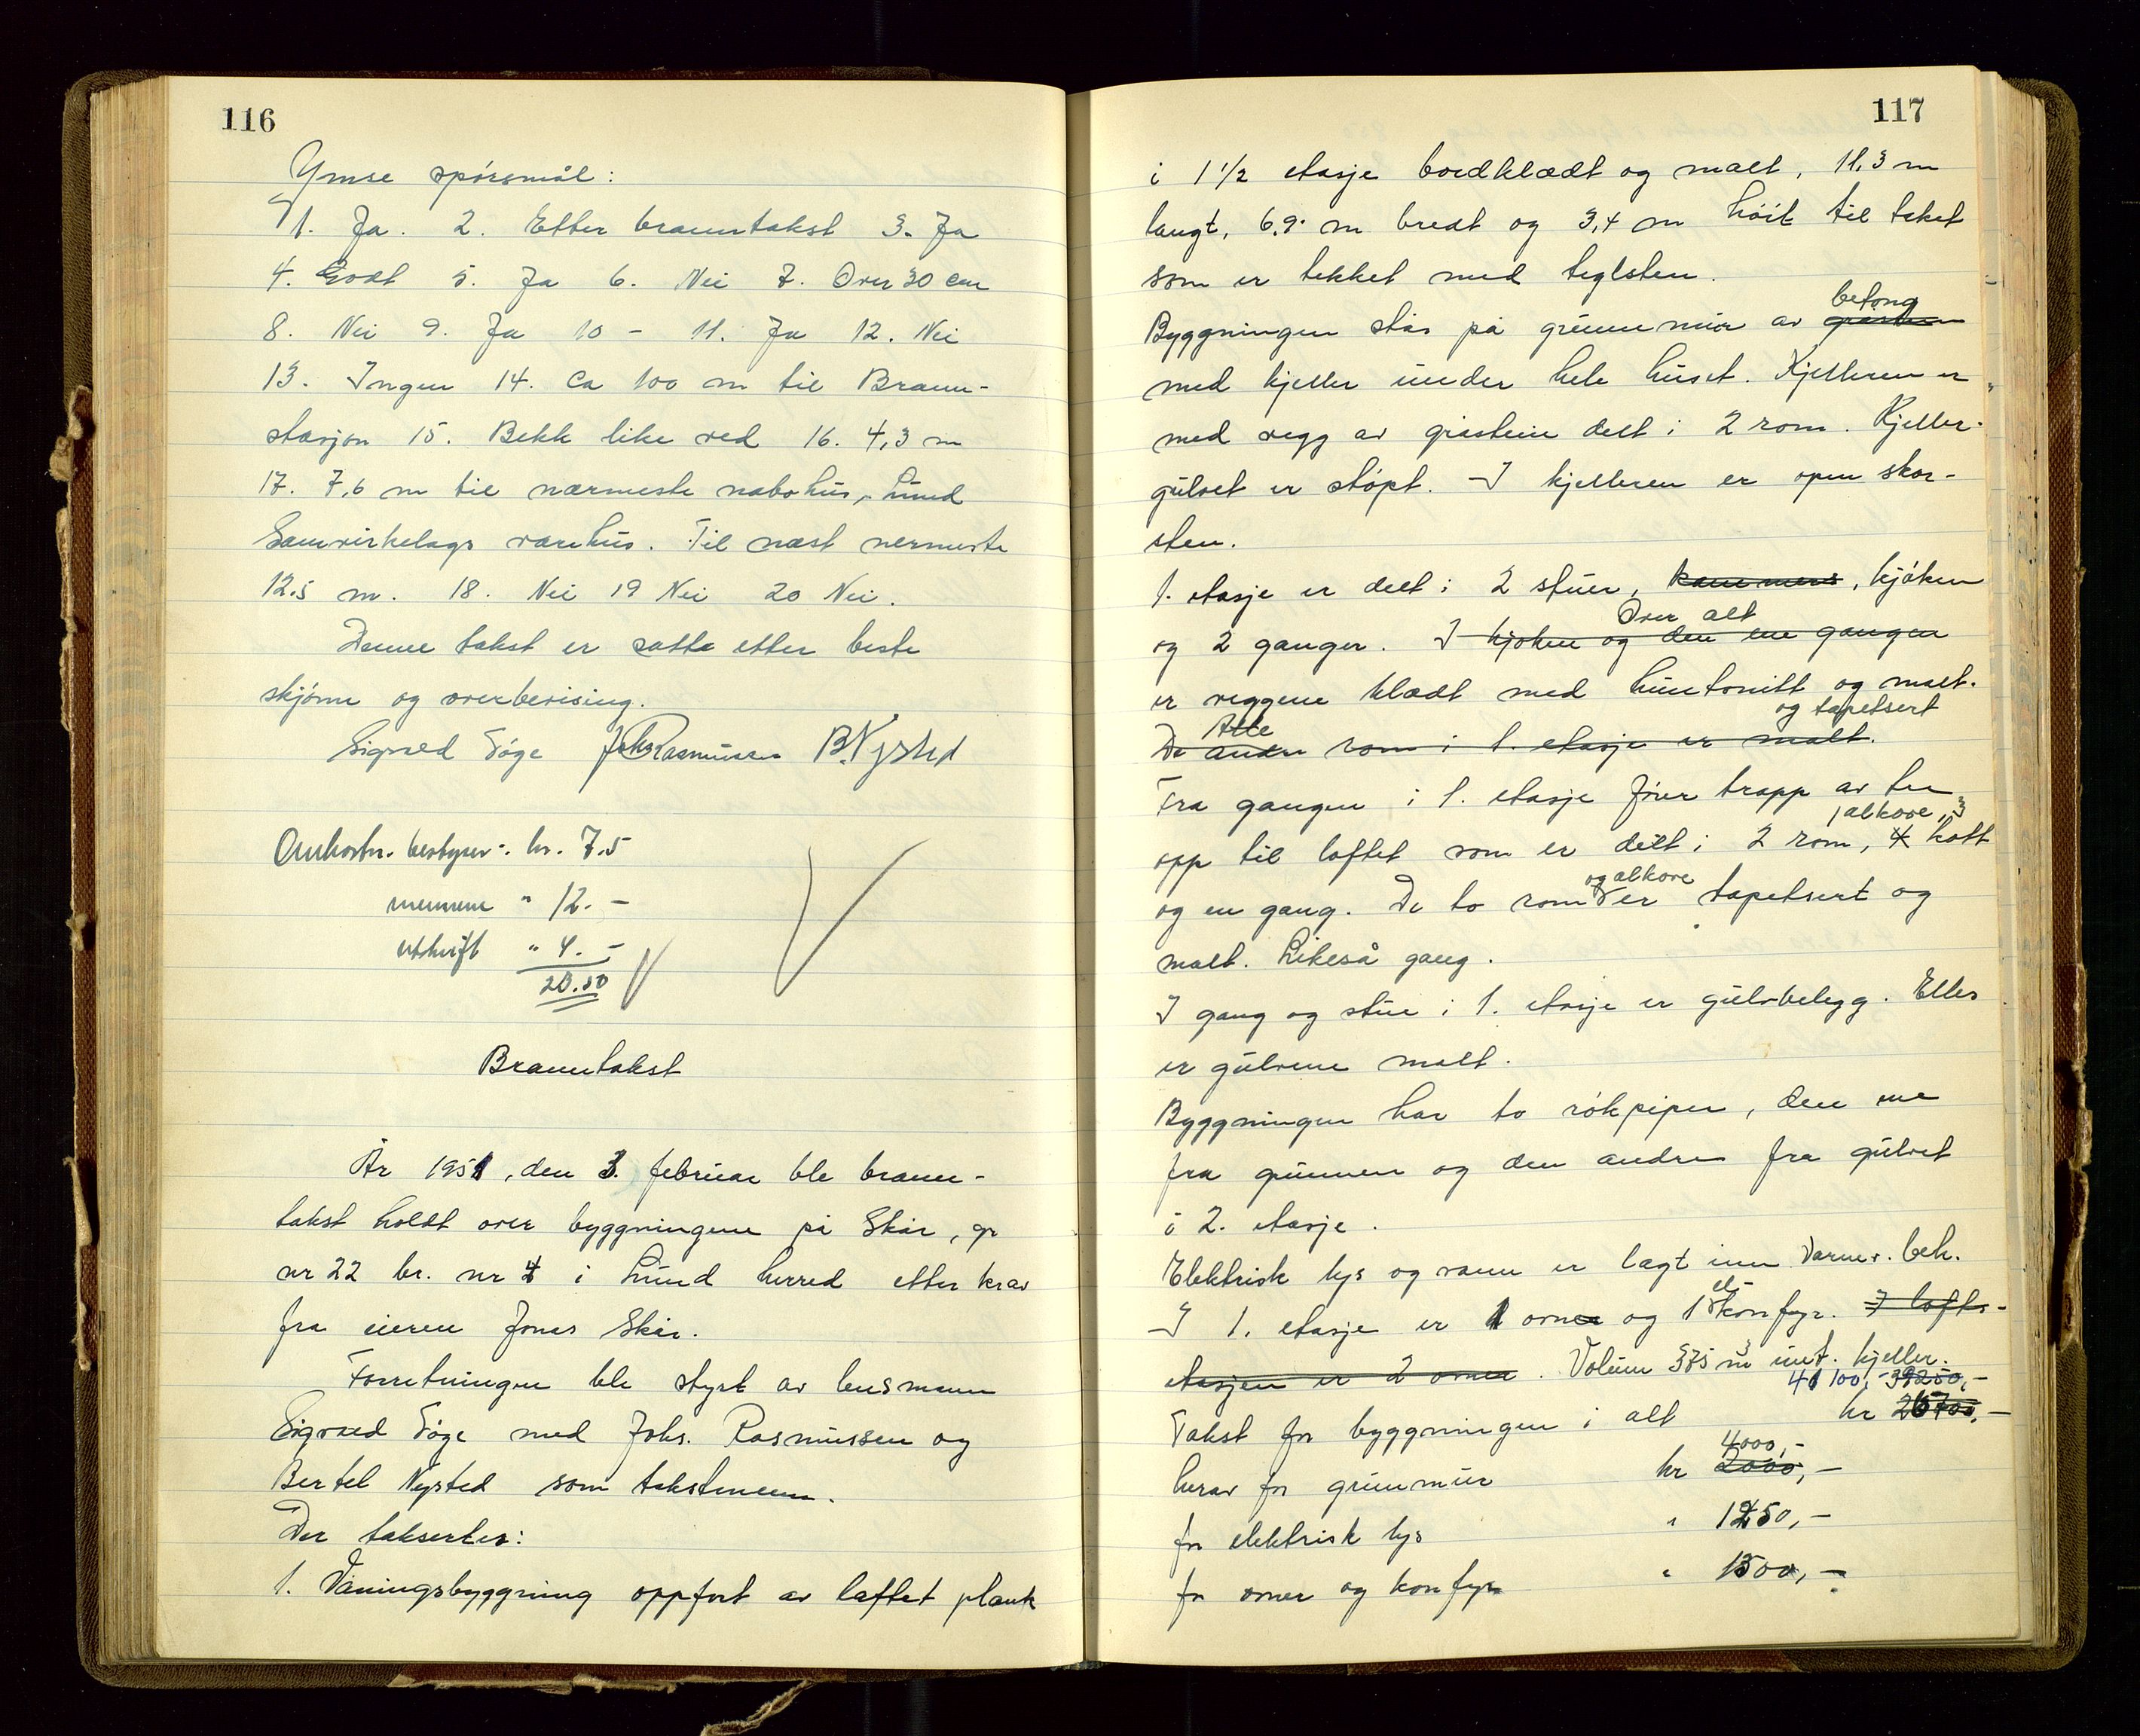 116
Ymse spørsmål:
1. Ja. 2. Etter branntakst 3. Ja
4. Godt 5. Ja 6. Nei 7. Over 30 cm
8. Nei 9. Ja 10 - 11. Ja 12. Nei
13. Ingen 14. Ca 100 m til Brann-
stasjon 15. Bekk like ved 16. 4,3 m
17. 7,6 m til nærmeste nabohus, Lund
Samvirkelags varehus. Til næst nermeste
12,5 m. 18. Nei 19 Nei 20 Nei.
Denne takst er satta etter beste
skjønn og overbevising.
Sigvald Tøge Johs Rasmussen B. Nysted
Omkostn. bestyrer: kr. 7.5
mennene " 12.-
utskrift " 4.-
20.50
Branntakst
År 1951, den 3. februar ble brann-
takst holdt over byggningene på Skår, gr
nr 22 br. nr 4 i Lund herred etter krav
fra eieren Jonas Skår.
Forretningen ble styrt av lensmann
Sigvald Tøge med Johs. Rasmussen og
Bertel Nysted som takstmenn.
Der taksertes:
1. Våningsbyggning oppført av laftet plank
117
i 1 1/2 etasje bordklædt og malt, 11,3 m
langt, 6,9 m bredt og 3,4 m høit til taket
som er tekket med teglsten.
betong
Byggningen står på grunnmur av gråsten
med kjeller under hele huset. Kjelleren er
med vegg av gråstein delt i 2 rom. Kjeller-
gulvet er støpt. I kjelleren er open skor-
sten.
1. etasje er delt i 2 stuer, kammers, kjøken
Over alt
og 2 ganger. I kjøken og den ene gangen
er veggene klædt med huntonitt og malt.
Alle og tapetsert
De andre rom i 1. etasje er malt.
Fra gangen i 1. etasje fører trapp av tre
1 alkove, 3
opp til loftet som er delt i 2 rom, 4 kott
og alkove
og en gang. De to rom er tapetsert og
malt. Likeså gang.
I gang og stue i 1. etasje er gulvbelegg. Elles
er gulvene malt.
Byggningen har to rökpiper, den ene
fra grunnen og den andre fra gulvet
i 2. etasje.
Elektrisk lys og vann er lagt inn. Varmev. beh.
el-
I 1. etasje er 1 omn og 1 komfyr. I lofts-
etasjen er 2 omner. Volum 375 m3 inkl. kjeller.
41 100,- 39250,-
Takst for byggningen i alt kr 26700,-
4000,-
herav for grunnmur kr 2000,-
for elektrisk lys " 1250,-
for omner og komfyr " 1500,-